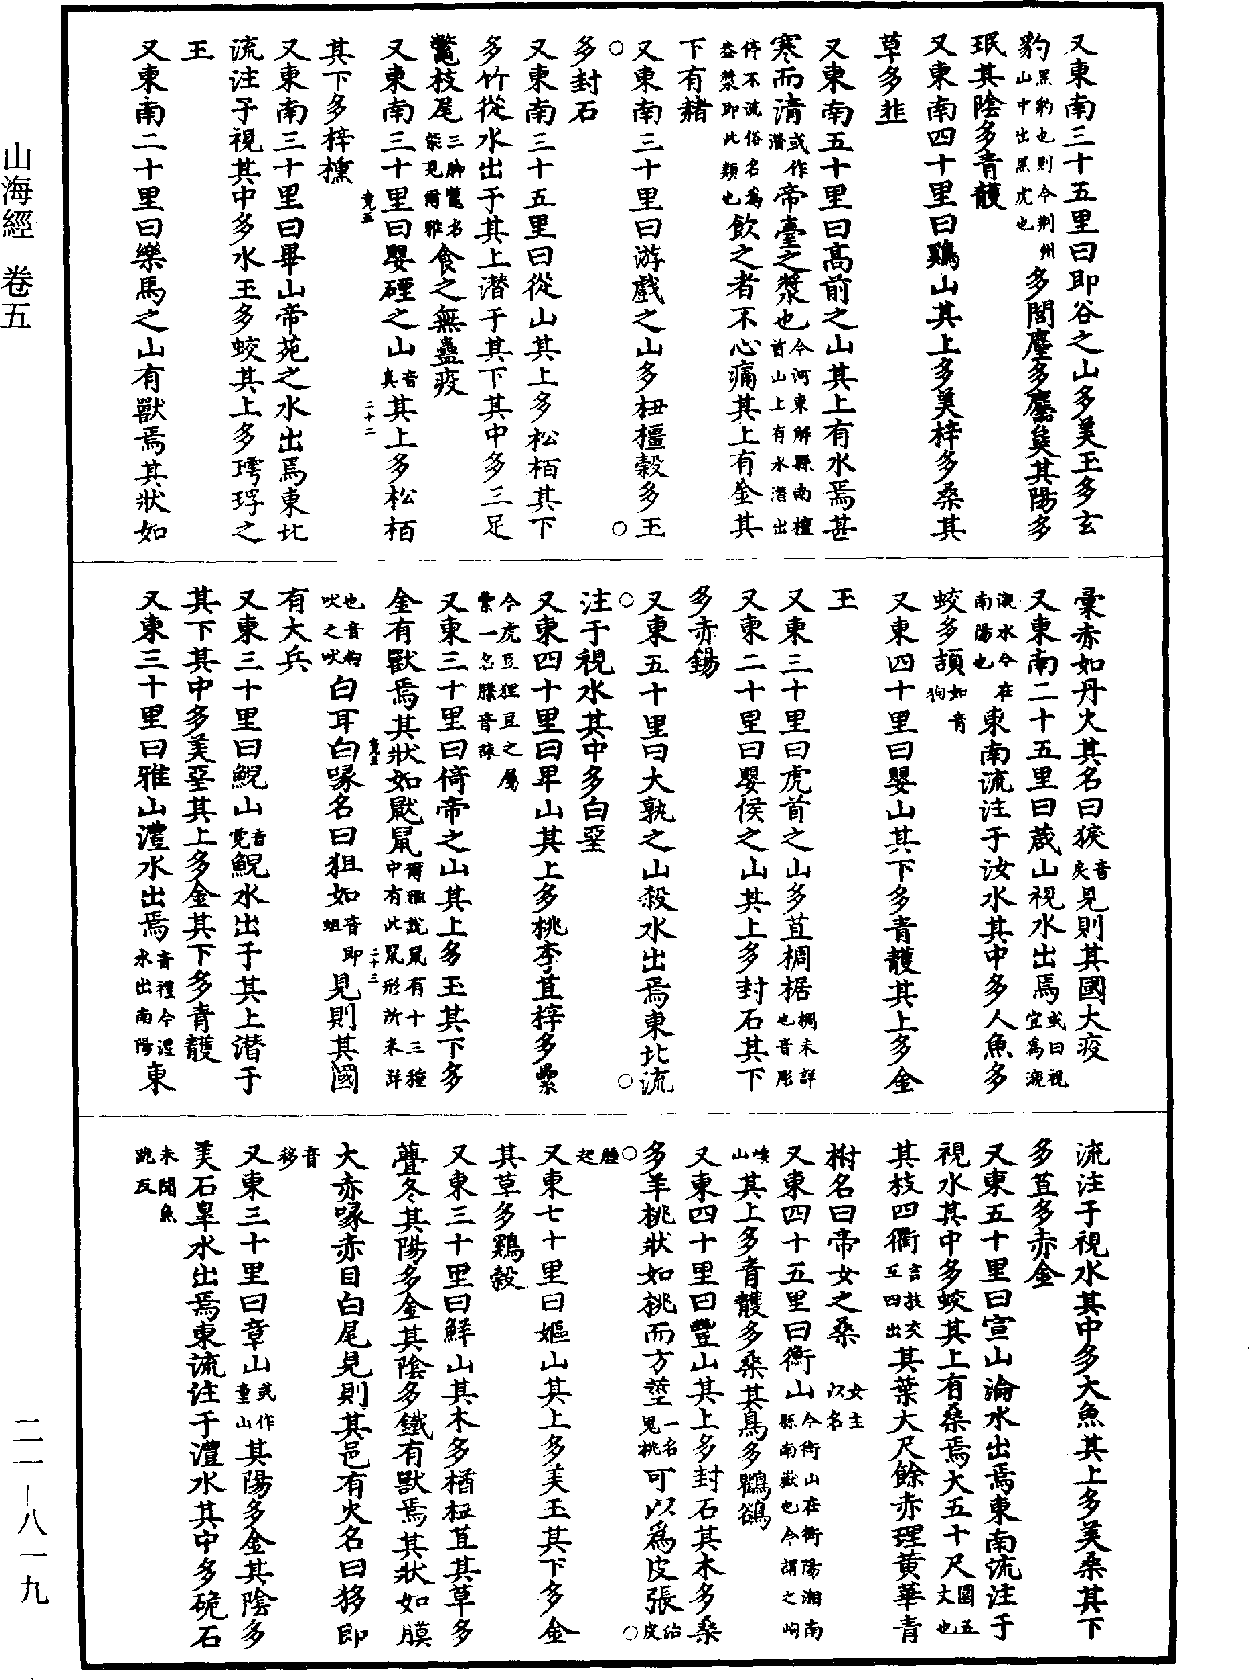 山海經 卷五
二一－八一九
又東南三十五里曰即谷之山多美玉多玄
豹黑豹也則今荆州山中出黑虎也多閭麈多麢㚟其陽多
珉其陰多青雘
又東南四十里曰鷄山其上多美梓多桑其
草多韭
又東南五十里曰高前之山其上有水焉甚
寒而清或作潛帝臺之漿也今河東解縣南檀首山上有水潛出
停不流俗名為盎漿即此類也飲之者不心痛其上有金其
下有赭
又東南三十里曰游戲之山多杻橿穀多玉
多封石
又東南三十五里曰從山其上多松栢其下
多竹從水出于其上潛于其下其中多三足
鼈枝尾三脚鼈名䏻見爾雅食之無蠱疫
又東南三十里曰嬰硜之山音真其上多松栢
其下多梓櫄
又東南三十里曰畢山帝苑之水出焉東北
流注于視其中多水玉多蛟其上多㻬琈之
玉
又東南二十里曰樂馬之山有獸焉其狀如
彙赤如丹火其名曰㺍音戾見則其國大疫
又東南二十五里曰葴山視水出焉或曰視宜為瀙
瀙水今在南陽也東南流注于汝水其中多人魚多
蛟多頡如青狗
又東四十里曰嬰山其下多青雘其上多金
玉
又東三十里曰虎首之山多苴椆椐椆未詳也音彫
又東二十里曰嬰侯之山其上多封石其下
多赤錫
又東五十里曰大孰之山殺水出焉東北流
注于視水其中多白堊
又東四十里曰卑山其上多桃李苴梓多纍
今虎豆狸豆之屬纍一名縢音誄
又東三十里曰倚帝之山其上多玉其下多
金有獸焉其狀如鼣鼠爾雅說鼠有十三種中有此鼠形所未詳
也音狗吠之吠白耳白喙名曰狙如音即蛆見則其國
有大兵
又東三十里曰鯢山音霓鯢水出于其上潛于
其下其中多美堊其上多金其下多青雘
又東三十里曰雅山澧水出焉音禮今澧水出南陽東
流注于視水其中多大魚其上多美桑其下
多苴多赤金
又東五十里曰宣山淪水出焉東南流注于
視水其中多蛟其上有桑焉大五十尺圍五丈也
其枝四衢言枝交互四出其葉大尺餘赤理黃華青
柎名曰帝女之桑女主以名
又東四十五里曰衡山今衡山在衡陽湘南縣南嶽也今謂之岣
嶁山其上多青雘多桑其鳥多鸜鵒
又東四十里曰豐山其上多封石其木多桑
多羊桃狀如桃而方莖一名鬼桃可以為皮張治皮
腫起
又東七十里曰嫗山其上多美玉其下多金
其草多鷄穀
又東三十里曰鮮山其木多楢杻苴其草多
虋冬其陽多金其陰多鐵有獸焉其狀如膜
大赤喙赤目白尾見則其邑有火名曰𢓨即
音移
又東三十里曰章山或作童山其陽多金其陰多
美石皐水出焉東流注于澧水其中多脆石
未聞魚跪反